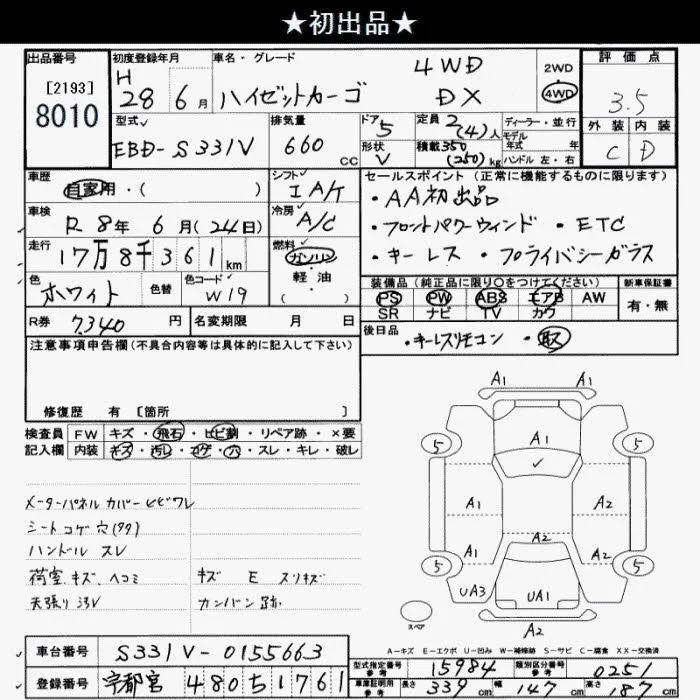 ★初出品★
出品番号
[2193]
8010
初度登録年月
H
28年 6月
車名・グレード
4WD
ハイゼットカーゴ DX
2WD
4WD
評価点
3.5
外装 内装
C D
型式
EBD-S331V
排気量
660
cc
ドア
5
形状
V
定員 2(4)人
積載 350(250)kg
ディーラー・並行
モデル
年式 年
ハンドル 左・右
車歴
自家用・( )
シフト
IA/T
車検
R 8年 6月(24日)
冷房
A/C
走行
17万8千361km
燃料
ガソリン
軽油
( )
色
ホワイト
色替
色コード
W19
R券 7,340 円
名変期限 月 日
セールスポイント(正常に機能するものに限ります)
・AA初出品
・フロントパワーウィンド ・ETC
・キーレス ・プライバシーガラス
装備品(純正品に限り○をつけてください)
PS PW ABS エアB AW
SR ナビ TV カワ
新車保証書
有・無
後日品
・キーレスリモコン ・取
注意事項申告欄(不具合内容等は具体的に記入して下さい)
修復歴 有 [箇所 ]
検査員 FW キズ・飛石・ヒビ割・リペア跡・×要
記入欄 内装 キズ・汚レ・コゲ・穴・スレ・キレ・破レ
メーターパネルカバーヒビワレ
シートコゲ穴(タタ)
ハンドルスレ
荷室キズ、ヘコミ
天張リヨゴレ
キズ E スリキズ
カンバン跡
A1 A1
5 A1 5
A1 A2
A2
A1 A2
5 5
UA3 UA1
スペア
A2
A-キズ E-エクボ U-凹み W-補修跡 S-サビ C-腐食 XX-交換済
車台番号 S331V-0155663
登録番号 宇都宮 480ち1761
型式指定番号 参考 15984
類別区分番号 参考 0251
車庫証明用 参考 長さ 339cm 幅 147cm 高さ
cm